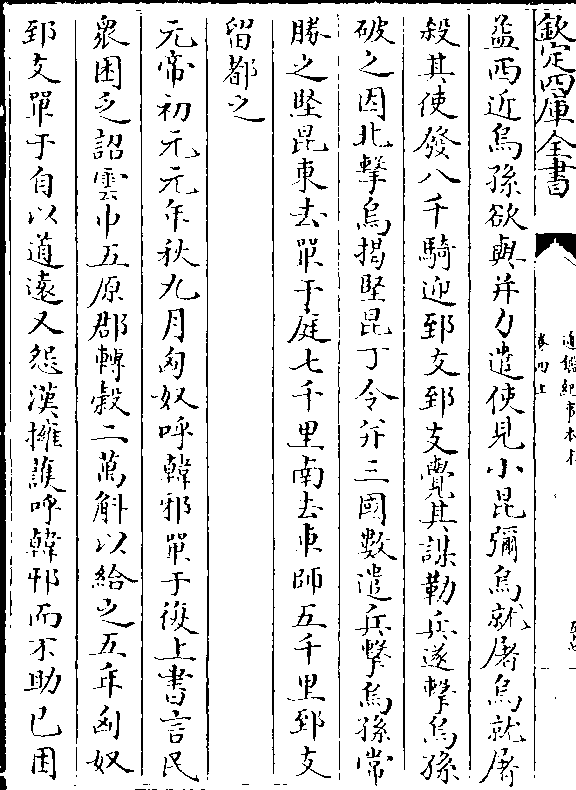 欽定四庫全書
通鑑紀事本末
卷四上
益西近烏孫欲與并力遣使見小昆彌烏就屠烏就屠
殺其使發八千騎迎郅支郅支覺其謀勒兵逢擊烏孫
破之因北擊烏揭堅昆丁令并三國數遣兵擊烏孫常
勝之堅昆東去單于庭七千里南去車師五千里郅支
留都之
元帝初元元年秋九月匈奴呼韓邪單于復上書言民
衆困乏詔雲中五原郡轉穀二萬斛以給之五年匈奴
郅支單于自以道遠又怨漢擁護呼韓邪而不助已困